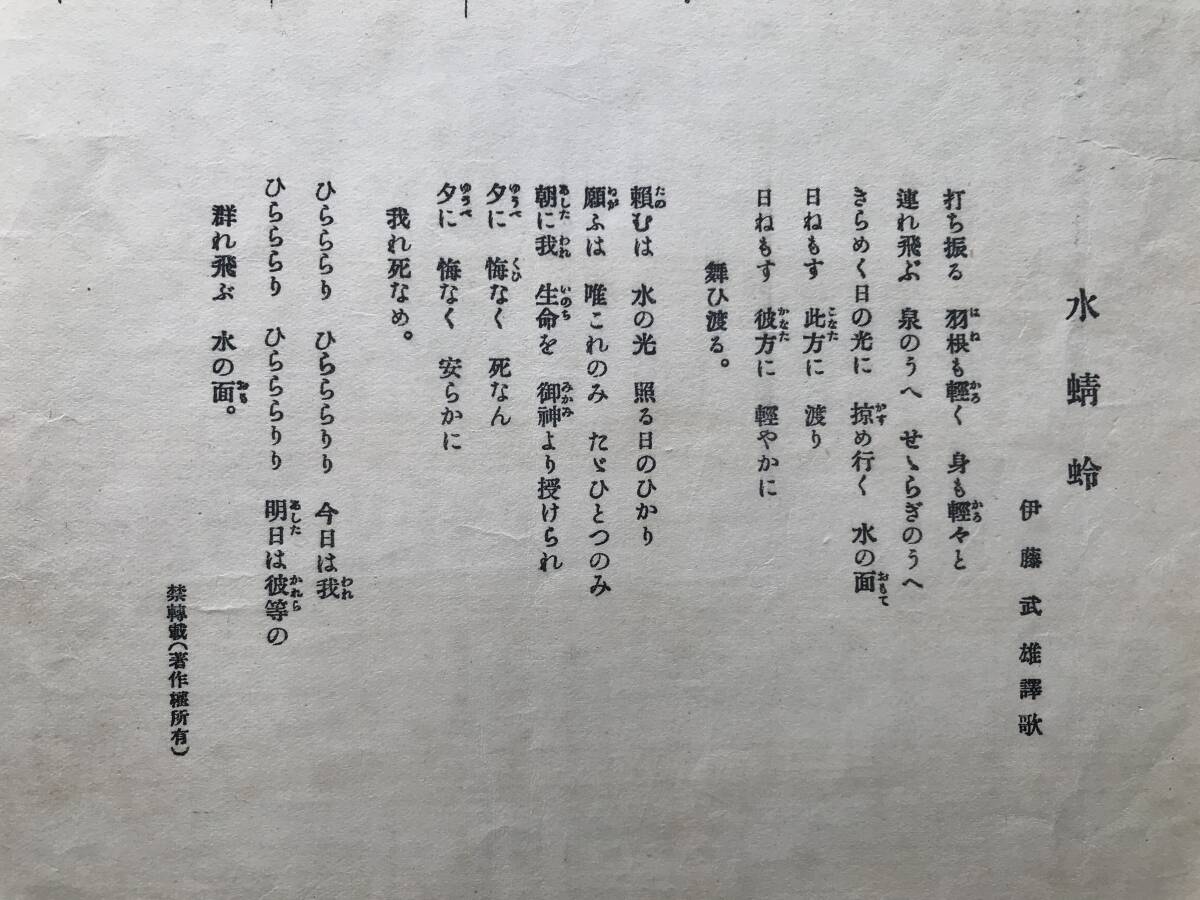 水蜻蛉
伊藤武雄譯歌
打ち振る　羽根も輕く　身も輕々と
連れ飛ぶ　泉のうへ　せゝらぎのうへ
きらめく日の光に　掠め行く　水の面
日ねもす　此方に　渡り
日ねもす　彼方に　輕やかに
舞ひ渡る。
賴むは　水の光　照る日のひかり
願ふは　唯これのみ　たゞひとつのみ
朝に我　生命を　御神より授けられ
夕に　悔なく　死なん
夕に　悔なく　安らかに
我れ死なめ。
ひらららり　ひらららりり　今日は我
ひらららり　ひらららりり　明日は彼等の
群れ飛ぶ　水の面。
禁轉載（著作權所有）